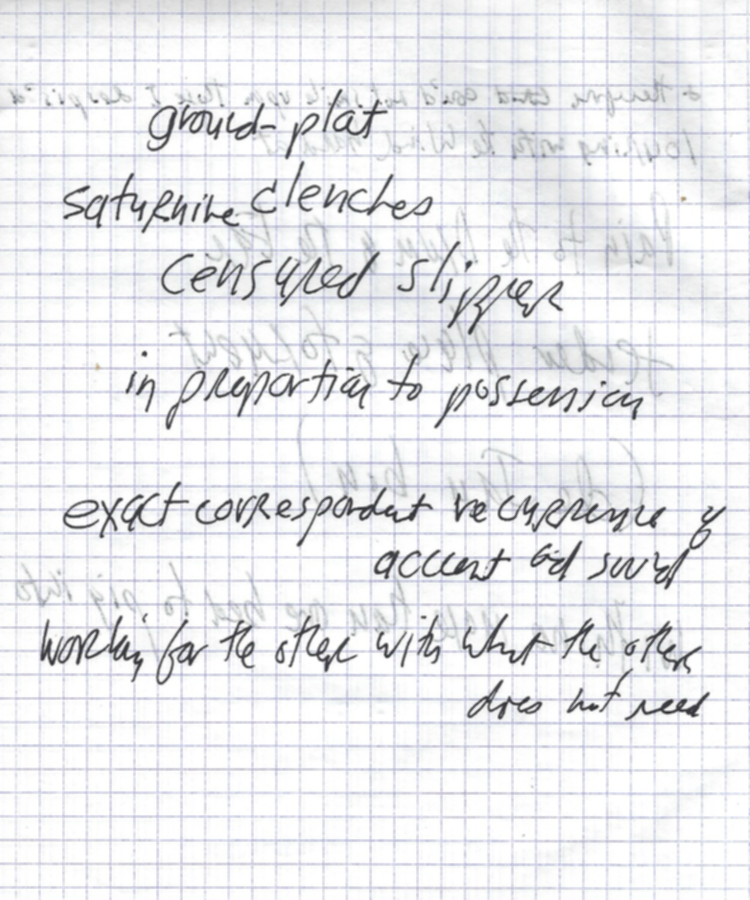 ground-plat
saturnine clenches
censured slipper
in proportion to possession
exact correspondent recurrence of
accent and sound
working for the other with what the other
does not need